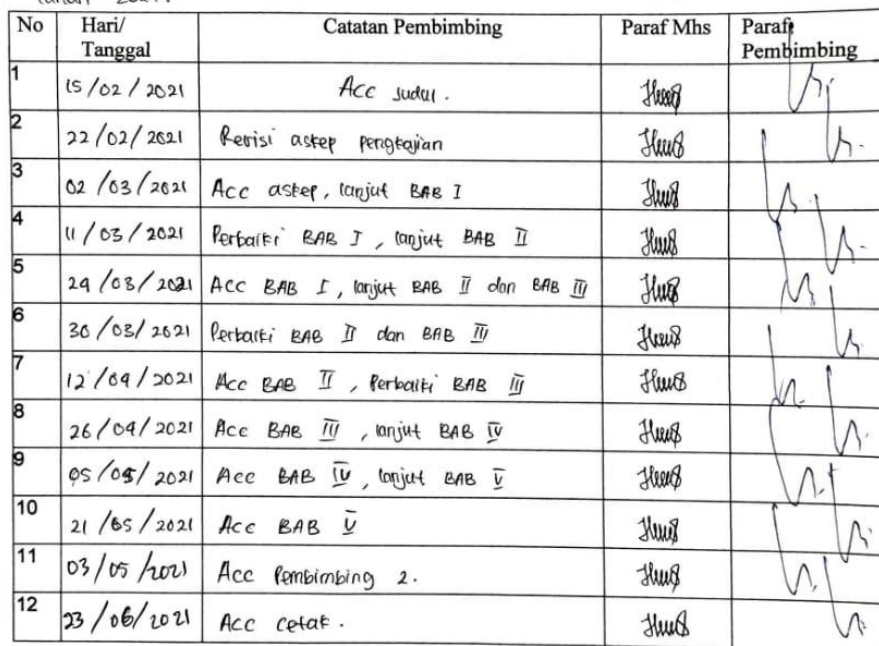 tahun 2021.
No Hari/ Catatan Pembimbing Paraf Mhs Paraf
Tanggal Pembimbing
1 15/02/2021 Acc Judul.
2 22/02/2021 Revisi askep pengkajian
3 02/03/2021 Acc askep, lanjut BAB I
4 11/03/2021 Perbaiki BAB I, lanjut BAB II
5 29/03/2021 Acc BAB I, lanjut BAB II dan BAB III
6 30/03/2021 Perbaiki BAB II dan BAB III
7 12/04/2021 Acc BAB II, Perbaiki BAB III
8 26/04/2021 Acc BAB III, lanjut BAB IV
9 05/05/2021 Acc BAB IV, lanjut BAB V
10 21/05/2021 Acc BAB V
11 03/05/2021 Acc Pembimbing 2.
12 23/06/2021 Acc cetak.